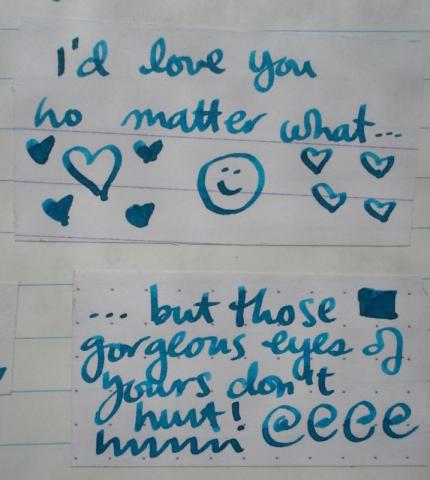 I'd love you
no matter what...
... but those
gorgeous eyes of
yours don't
hurt!
@eeee